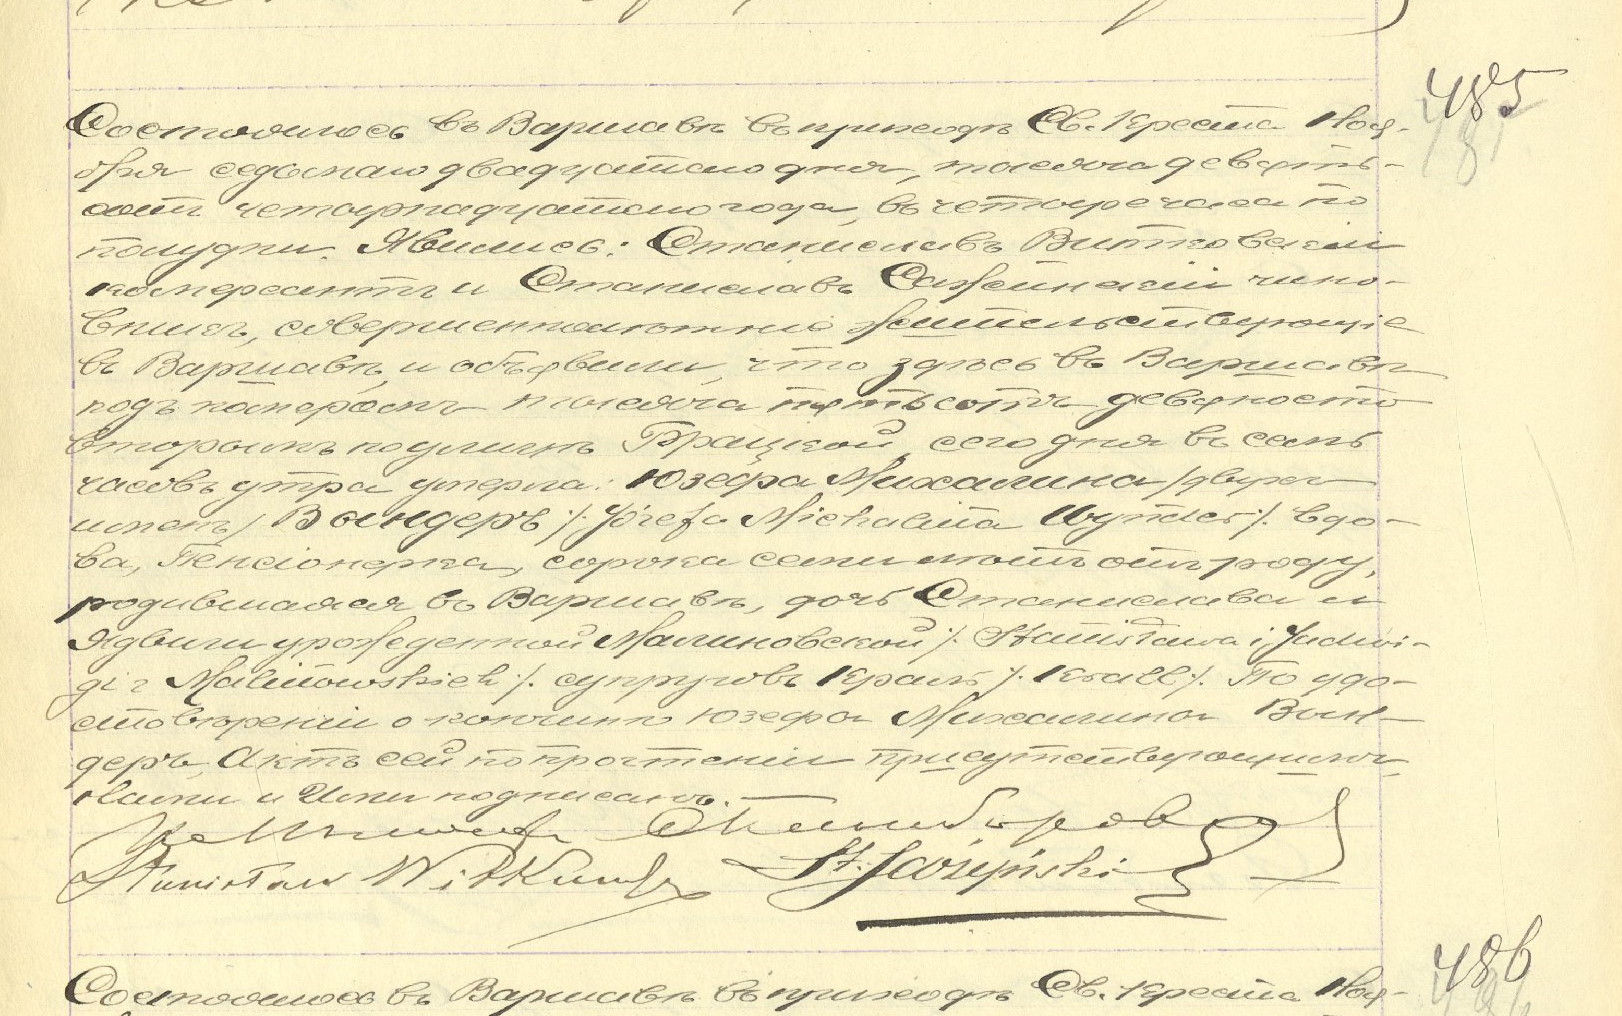 485
Состоялось въ Варшавѣ въ приходѣ Св. Креста Ноя-
бря седьмаго двадцатаго дня, тысяча девять-
сотъ четырнадцатаго года, въ четыре часа по
полудни. Явились: Станиславъ Витковскій
коммерсантъ и Станиславъ Сажинскій чино-
вникъ, совершеннолѣтніе жительствующіе
въ Варшавѣ, и объявили, что здѣсь въ Варшавѣ
подъ номеромъ тысяча пятьсотъ девяносто
вторымъ по улицѣ Брацкой, сего дня въ семь
часовъ утра умерла: Юзефа Михалина /двухъ
именъ/ Вындеръ /. Józefa Michalina Wynder /. вдо-
ва, Пенсіонерка, сорока семи лѣтъ отъ роду,
родившаяся въ Варшавѣ, дочь Станислава и
Ядвиги урожденной Малиновской /. Stanisława i Jadwi-
gi z Malinowskich /. супруговъ Краль /. Krall /. По удо-
стовѣреніи о кончинѣ Юзефа Михалина Вын-
деръ, Актъ сей по прочтеніи присутствующимъ,
Нами и Ими подписанъ.
Stanisław Witkowski St. Sażyński
486
Состоялось въ Варшавѣ въ приходѣ Св. Креста Ноя-